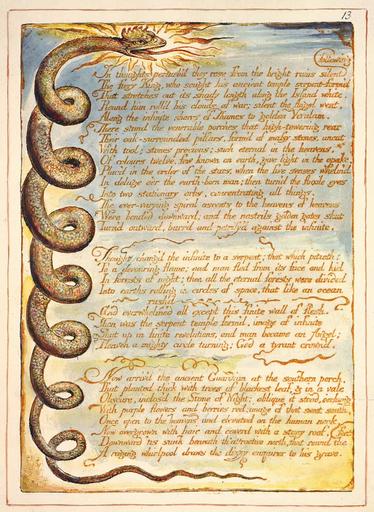 13
following
In thoughts perturb'd they rose from the bright ruins silent
The fiery King, who sought his ancient temple serpent-form'd
That stretches out its shady length along the Island white.
Round him roll'd his clouds of war; silent the Angel went,
Along the infinite shores of Thames to golden Verulam.
There stand the venerable porches that high-towering rear
Their oak-surrounded pillars, form'd of massy stones, uncut
With tool; stones precious; such eternal in the heavens,
Of colours twelve, few known on earth, give light in the opake,
Plac'd in the order of the stars, when the five senses whelm'd
In deluge o'er the earth-born man; then turn'd the fluxile eyes
Into two stationary orbs, concentrating all things.
The ever-varying spiral ascents to the heavens of heavens
Were bended downward, and the nostrils golden gates shut
Turn'd outward, barr'd and petrify'd against the infinite.
Thought chang'd the infinite to a serpent; that which pitieth:
To a devouring flame; and man fled from its face and hid
In forests of night; then all the eternal forests were divided
Into earths rolling in circles of space, that like an ocean
rush'd
And overwhelmed all except this finite wall of flesh.
Then was the serpent temple form'd, image of infinite
Shut up in finite revolutions, and man became an Angel;
Heaven a mighty circle turning; God a tyrant crown'd.
Now arriv'd the ancient Guardian at the southern porch,
That planted thick with trees of blackest leaf, & in a vale
Obscure, inclos'd the Stone of Night; oblique it stood, o'erhung
With purple flowers and berries red; image of that sweet south,
Once open to the heavens and elevated on the human neck,
Now overgrown with hair and coverd with a stony roof;
feet
Downward 'tis sunk beneath th' attractive north, that round the
A raging whirlpool draws the dizzy enquirer to his grave.